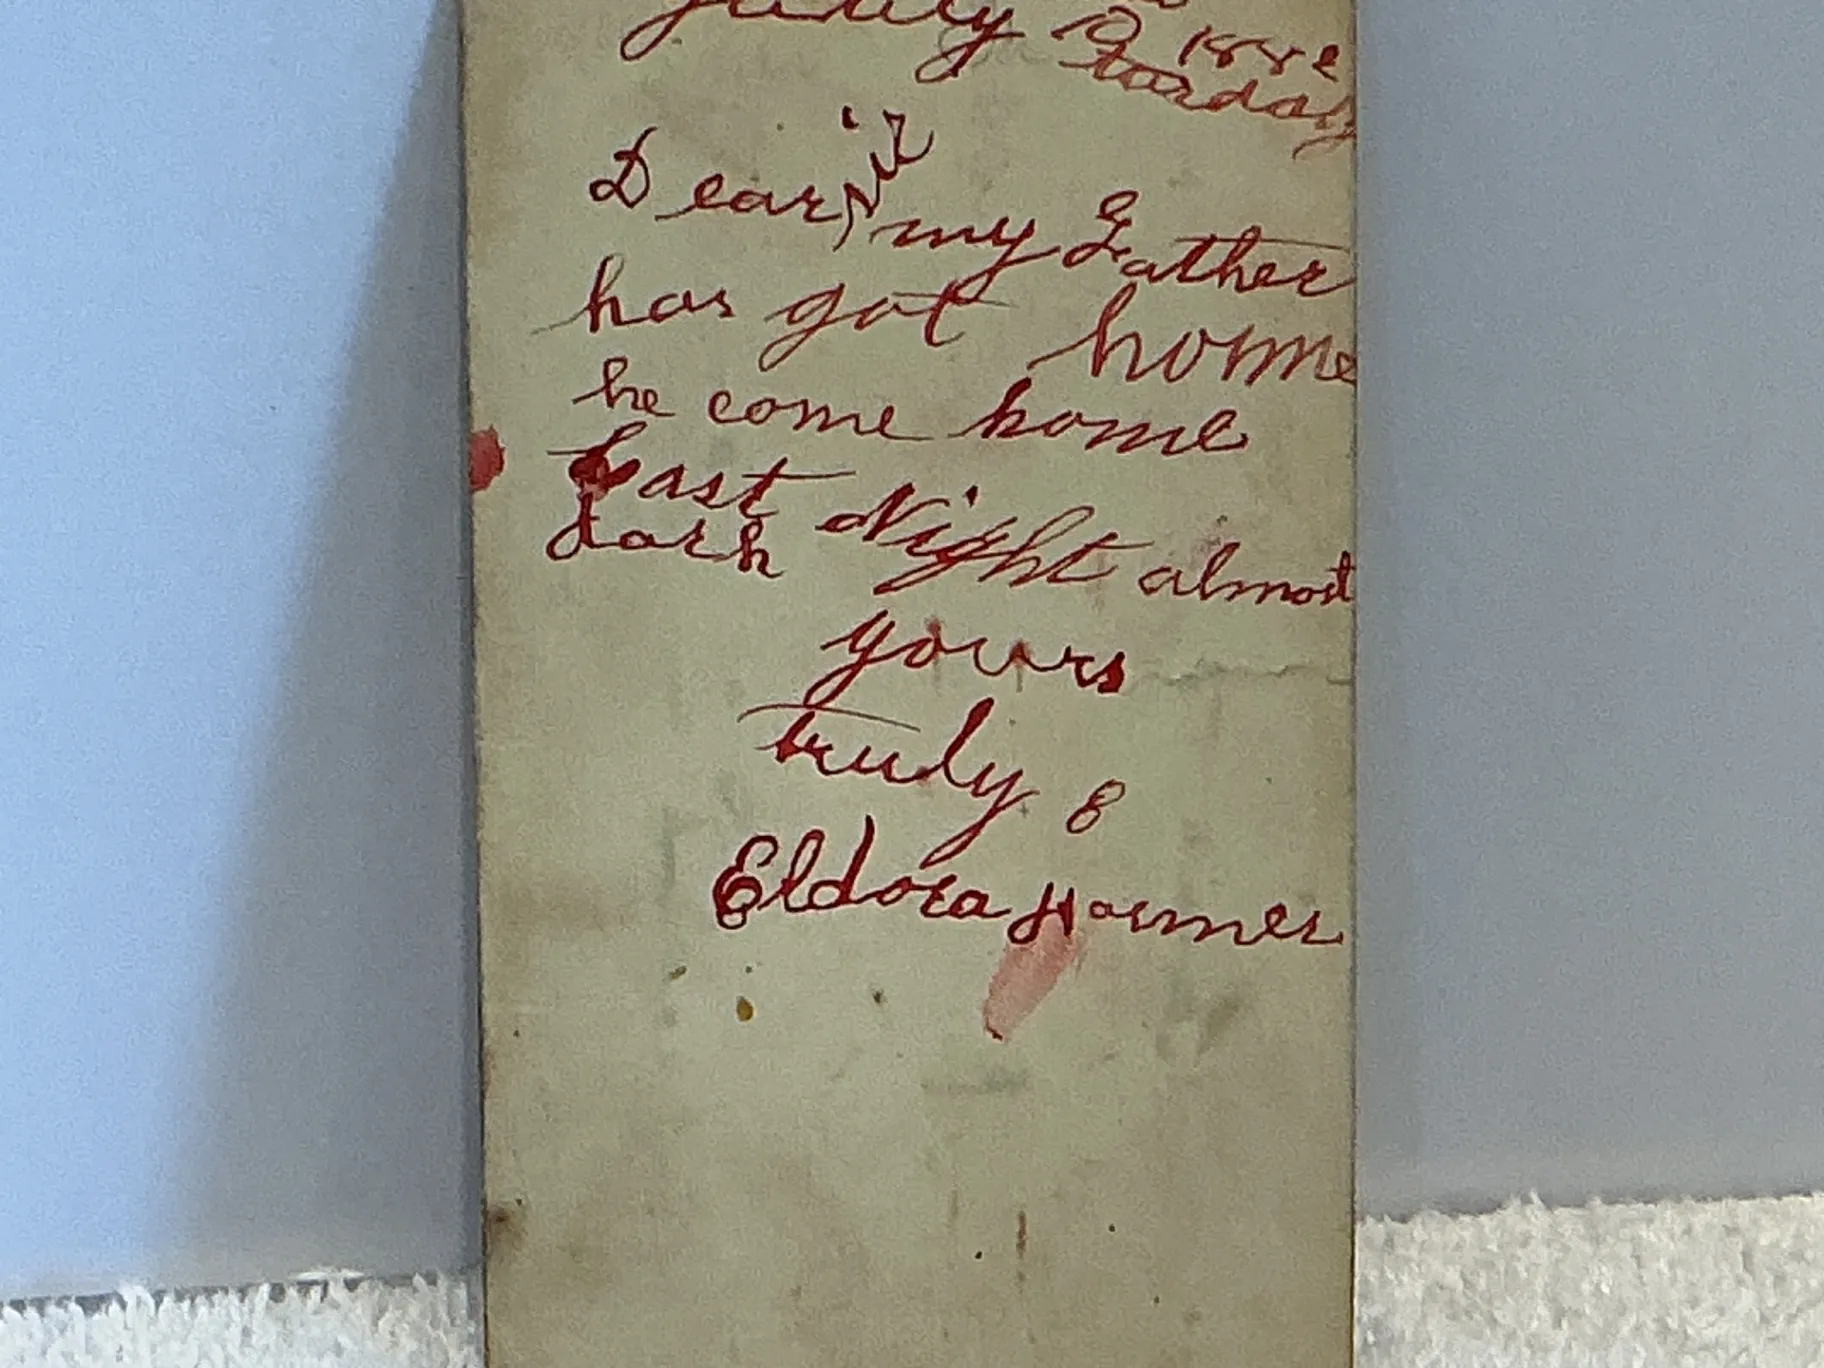 Dear sir my Father
has got home
he come home
Last Night almost
dark
yours
truly
Eldora Harmer